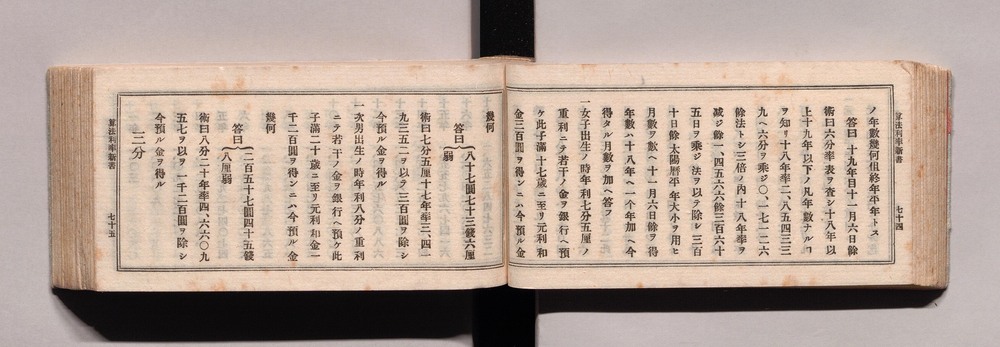 算法利率新書
七十四
ノ年數幾何但終年半年トス
答曰　十九年目十一月六日餘
術曰六分率表ヲ査シ十八年以
上十九年以下ノ凡年數ナルコ
ヲ知リ十八年率二、八五四三三
九ヘ六分ヲ乘ジ〇、一七一二六
餘法トシ三倍ノ內十八年率ヲ
減ジ餘一、四五六六餘三百六十
五日ヲ乘ジ法ヲ以テ除シ三百
十日餘太陽曆平年大小ヲ用ヒ
月數ヲ數ヘ十一月六日餘ヲ得
年數ハ十八年ヘ一个年加ヘ今
得タル月數ヲ加ヘ答フ
一女子出生ノ時年利七分五厘ノ
重利ニテ若干ノ金ヲ銀行ヘ預
ケ此子滿十七歲ニ至リ元利和
金三百圓ヲ得ンニハ今預ル金
幾何
答曰　八十七圓七十三錢六厘
弱
術曰七分五厘十七年率三、四一
九三五二ヲ以テ三百圓ヲ除シ
今預ル金ヲ得ル
一次男出生ノ時年利八分ノ重利
ニテ若干ノ金ヲ銀行ヘ預ケ此
子滿二十歲ニ至リ元利和金一
千二百圓ヲ得ンニハ今預ル金
幾何
答曰　二百五十七圓四十五錢
八厘弱
術曰八分二十年率四、六六〇九
五七ヲ以ヲ一千二百圓ヲ除シ
今預ル金ヲ得ル
三分
算法利率新書
七十五